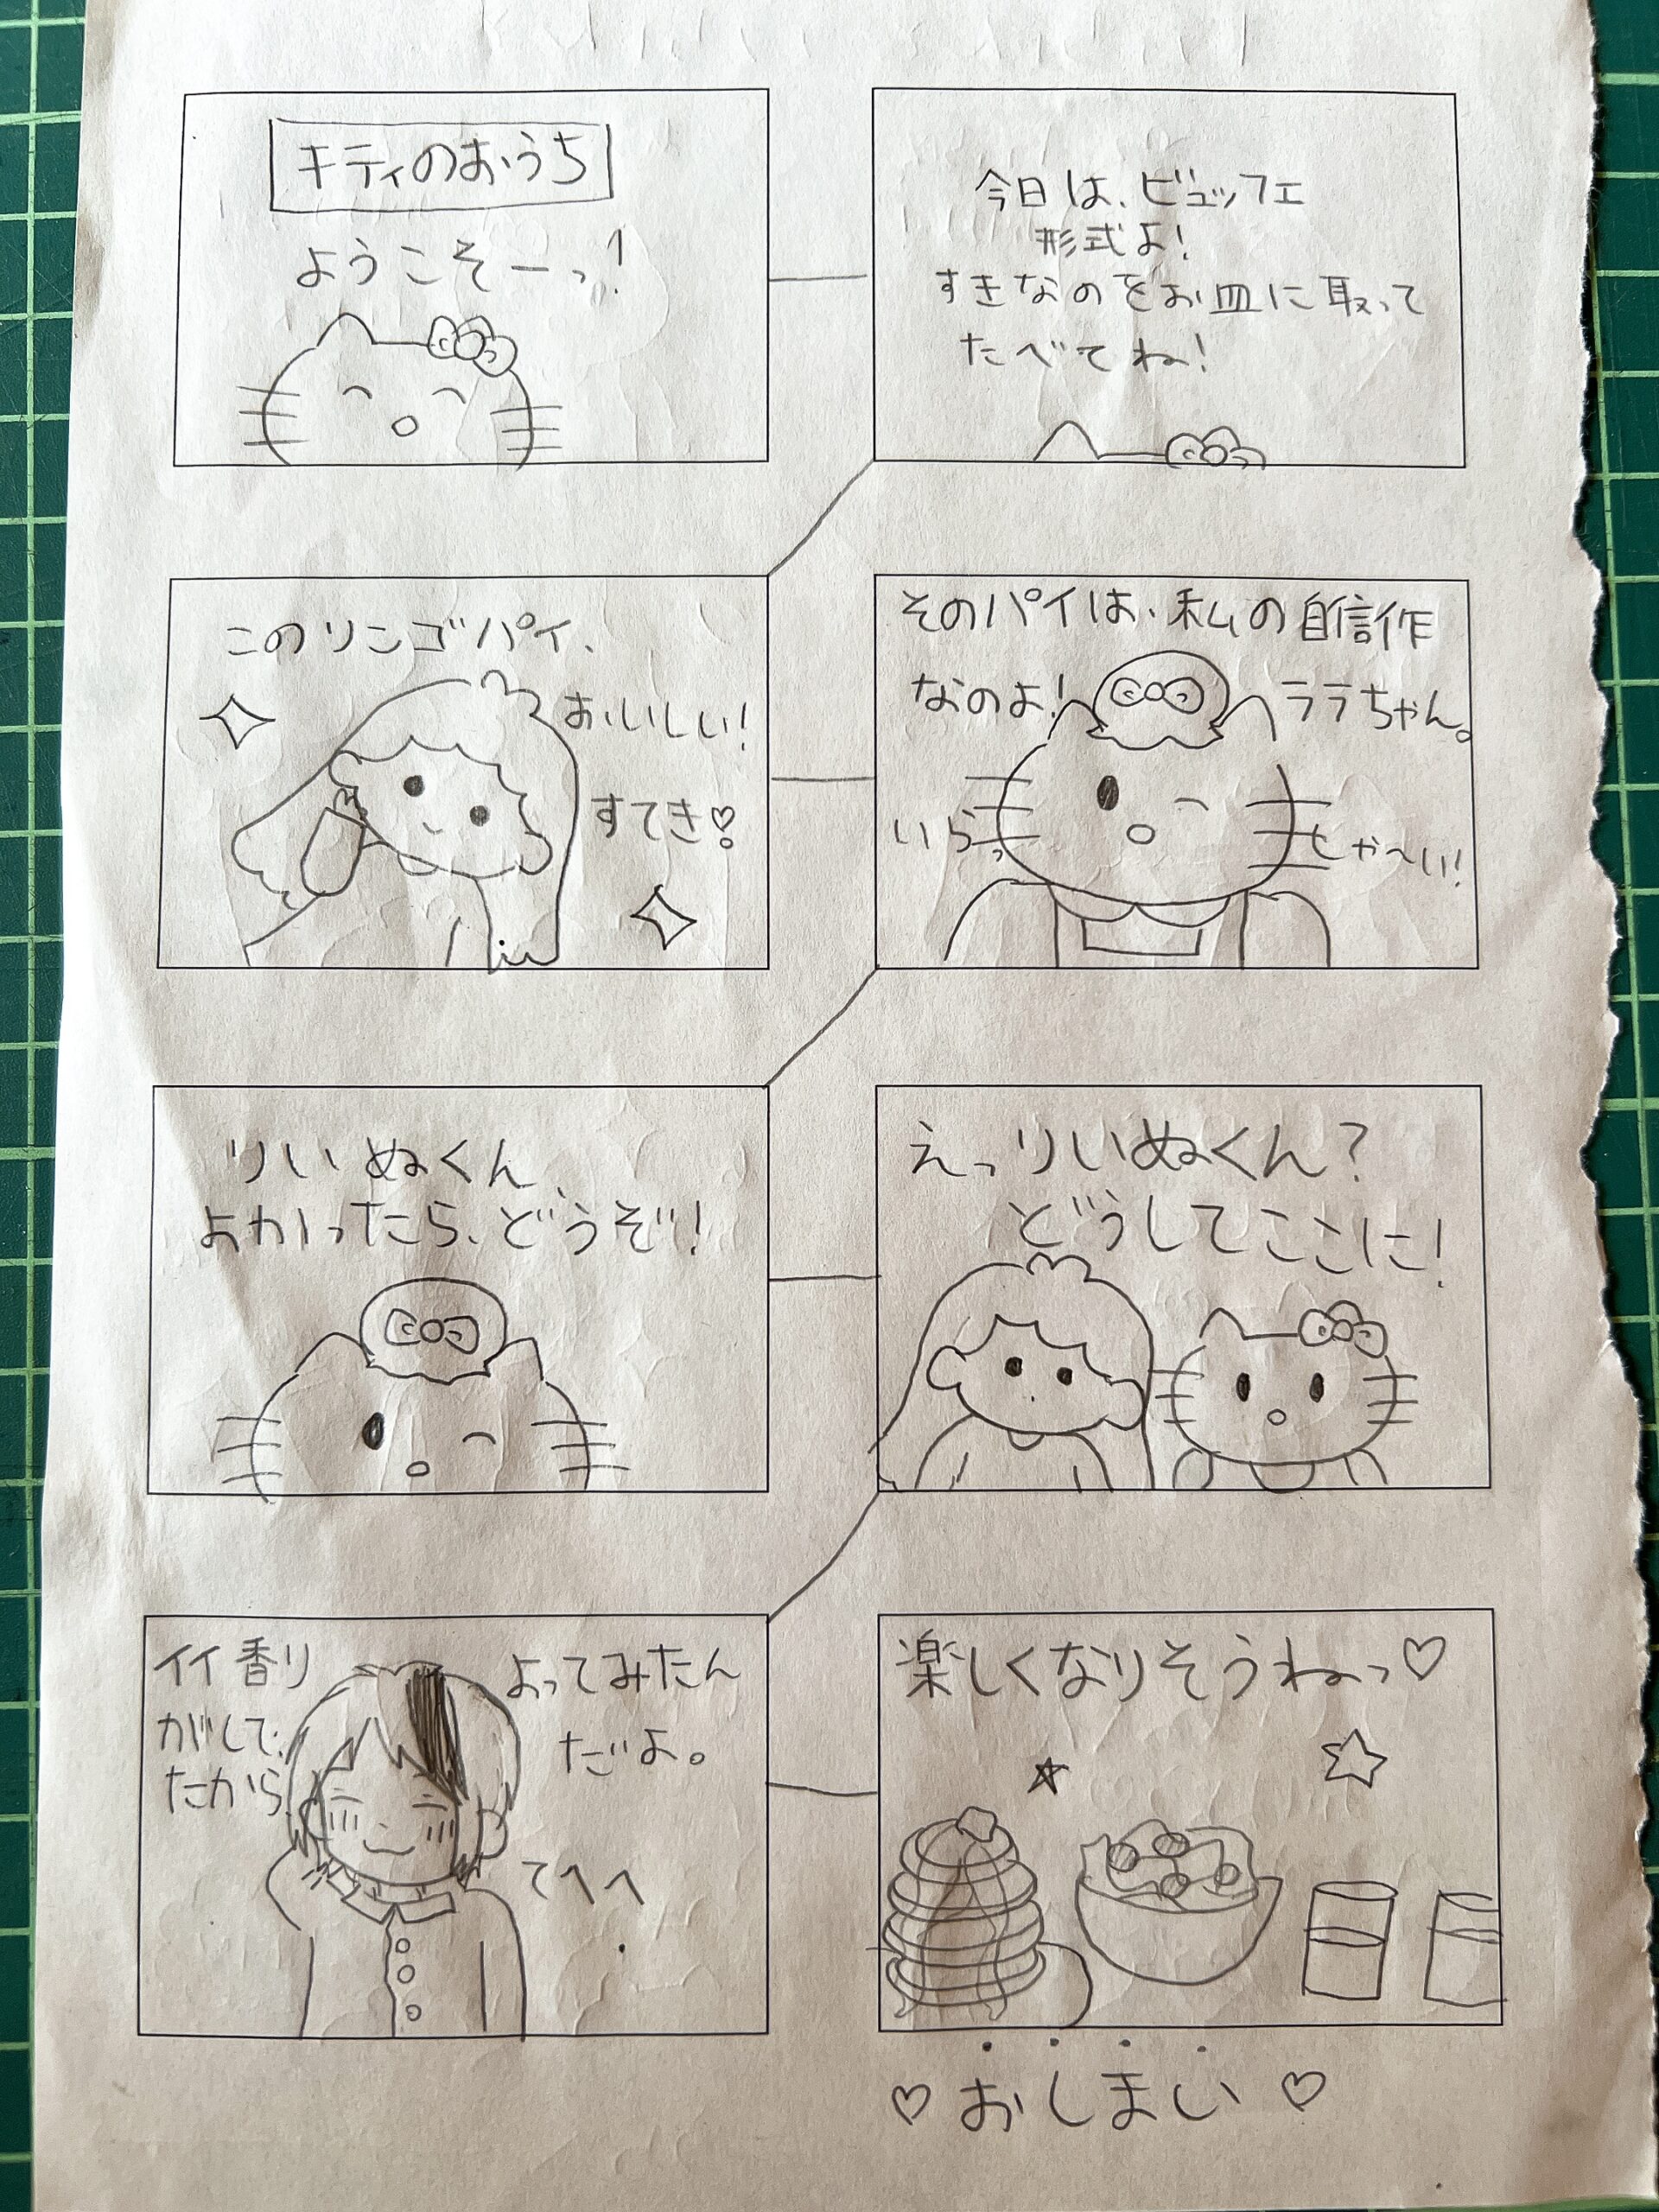 キティのおうち
ようこそーっ!
今日は、ビュッフェ
形式よ!
すきなのをお皿に取って
たべてね!
このリンゴパイ、
おいしい!
すてき♡
そのパイは、私の自信作
なのよ!
ララちゃん。
いらっ
しゃ〜い!
りいぬくん、
よかったら、どうぞ!
えっりいぬくん?
どうしてここに!
イイ香り
がして、
たから
よってみたん
だよ。
てへへ
楽しくなりそうねっ♡
♡おしまい♡